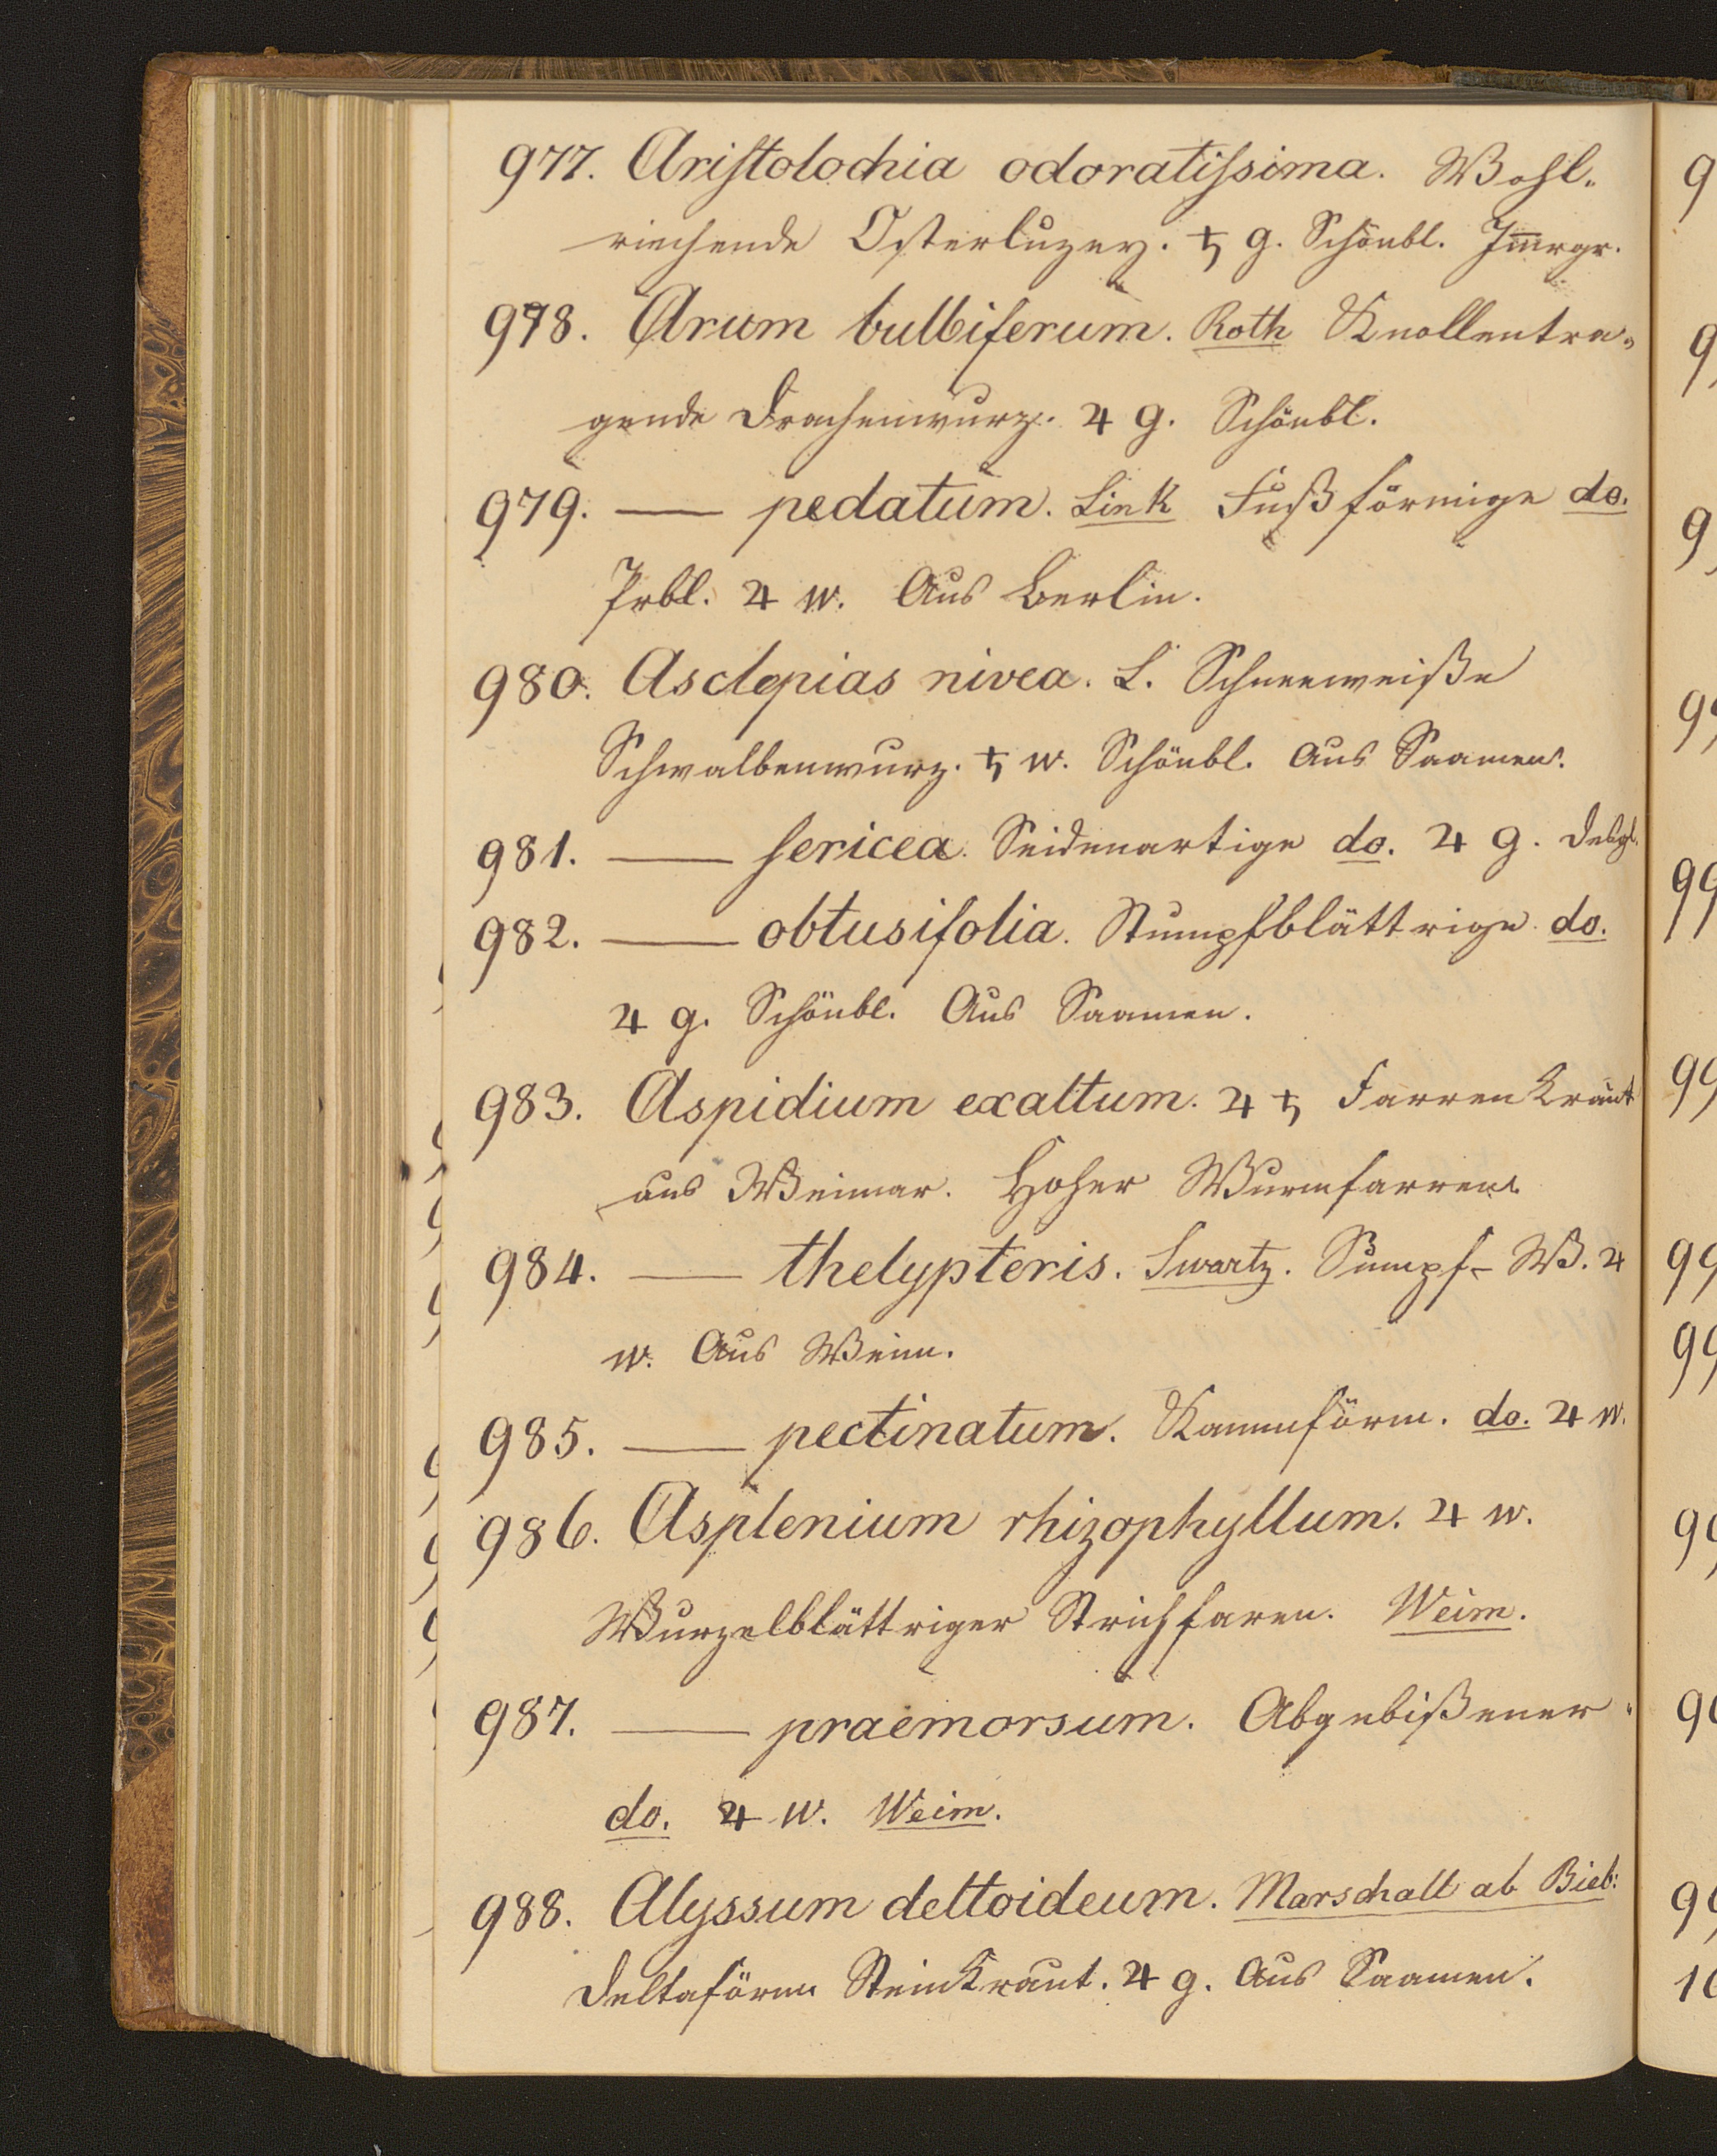 977. Aristolochia odoratissima. Wohl-
riechende Osterluzey. ♄ g. Schönbl. Im̅rgr.
978. Arum bulbiferum. Roth Knollentra-
gende Drachenwurz. ♃ g. Schönbl.
979. — pedatum. Link Fußförmige do.
♃ w. Aus Berlin.
980. Asclepias nivea. L. Schneeweiße
Schwalbenwurz. ♄ w. Schönbl. Aus Saamen.
981. — sericea. Seidenartige do. ♃ g. Desgl.
982. — obtusifolia. Stumpfblättrige do.
♃ g. Schönbl. Aus Saamen.
983. Aspidium exaltum. ♃ ♄ Farrenkraut
aus Weimar. Hoher Wurmfarren
984. — thelypteris. Swartz. Sumpf- W. ♃
w. Aus Weim.
985. — pectinatum. Kammförm. do. ♃ w.
986. Asplenium rhizophyllum. ♃ w.
Wurzelblättriger Strichfaren. Weim.
987. — praemorsum. Abgebißener
do. ♃ w. Weim.
988. Alyssum deltoideum. Marschall ab Bieb:
Deltaförm. Steinkraut. ♃ g. Aus Saamen.